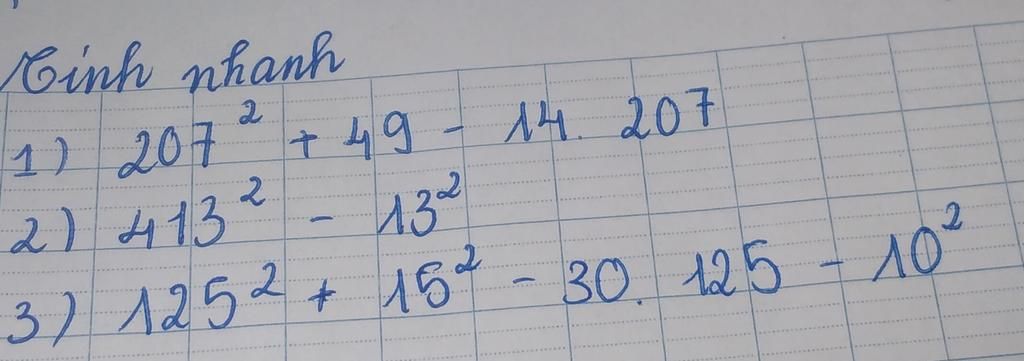 Tính nhanh
1) 207² + 49 - 14. 207
2) 413² - 13²
3) 125² + 15² - 30. 125 - 10²